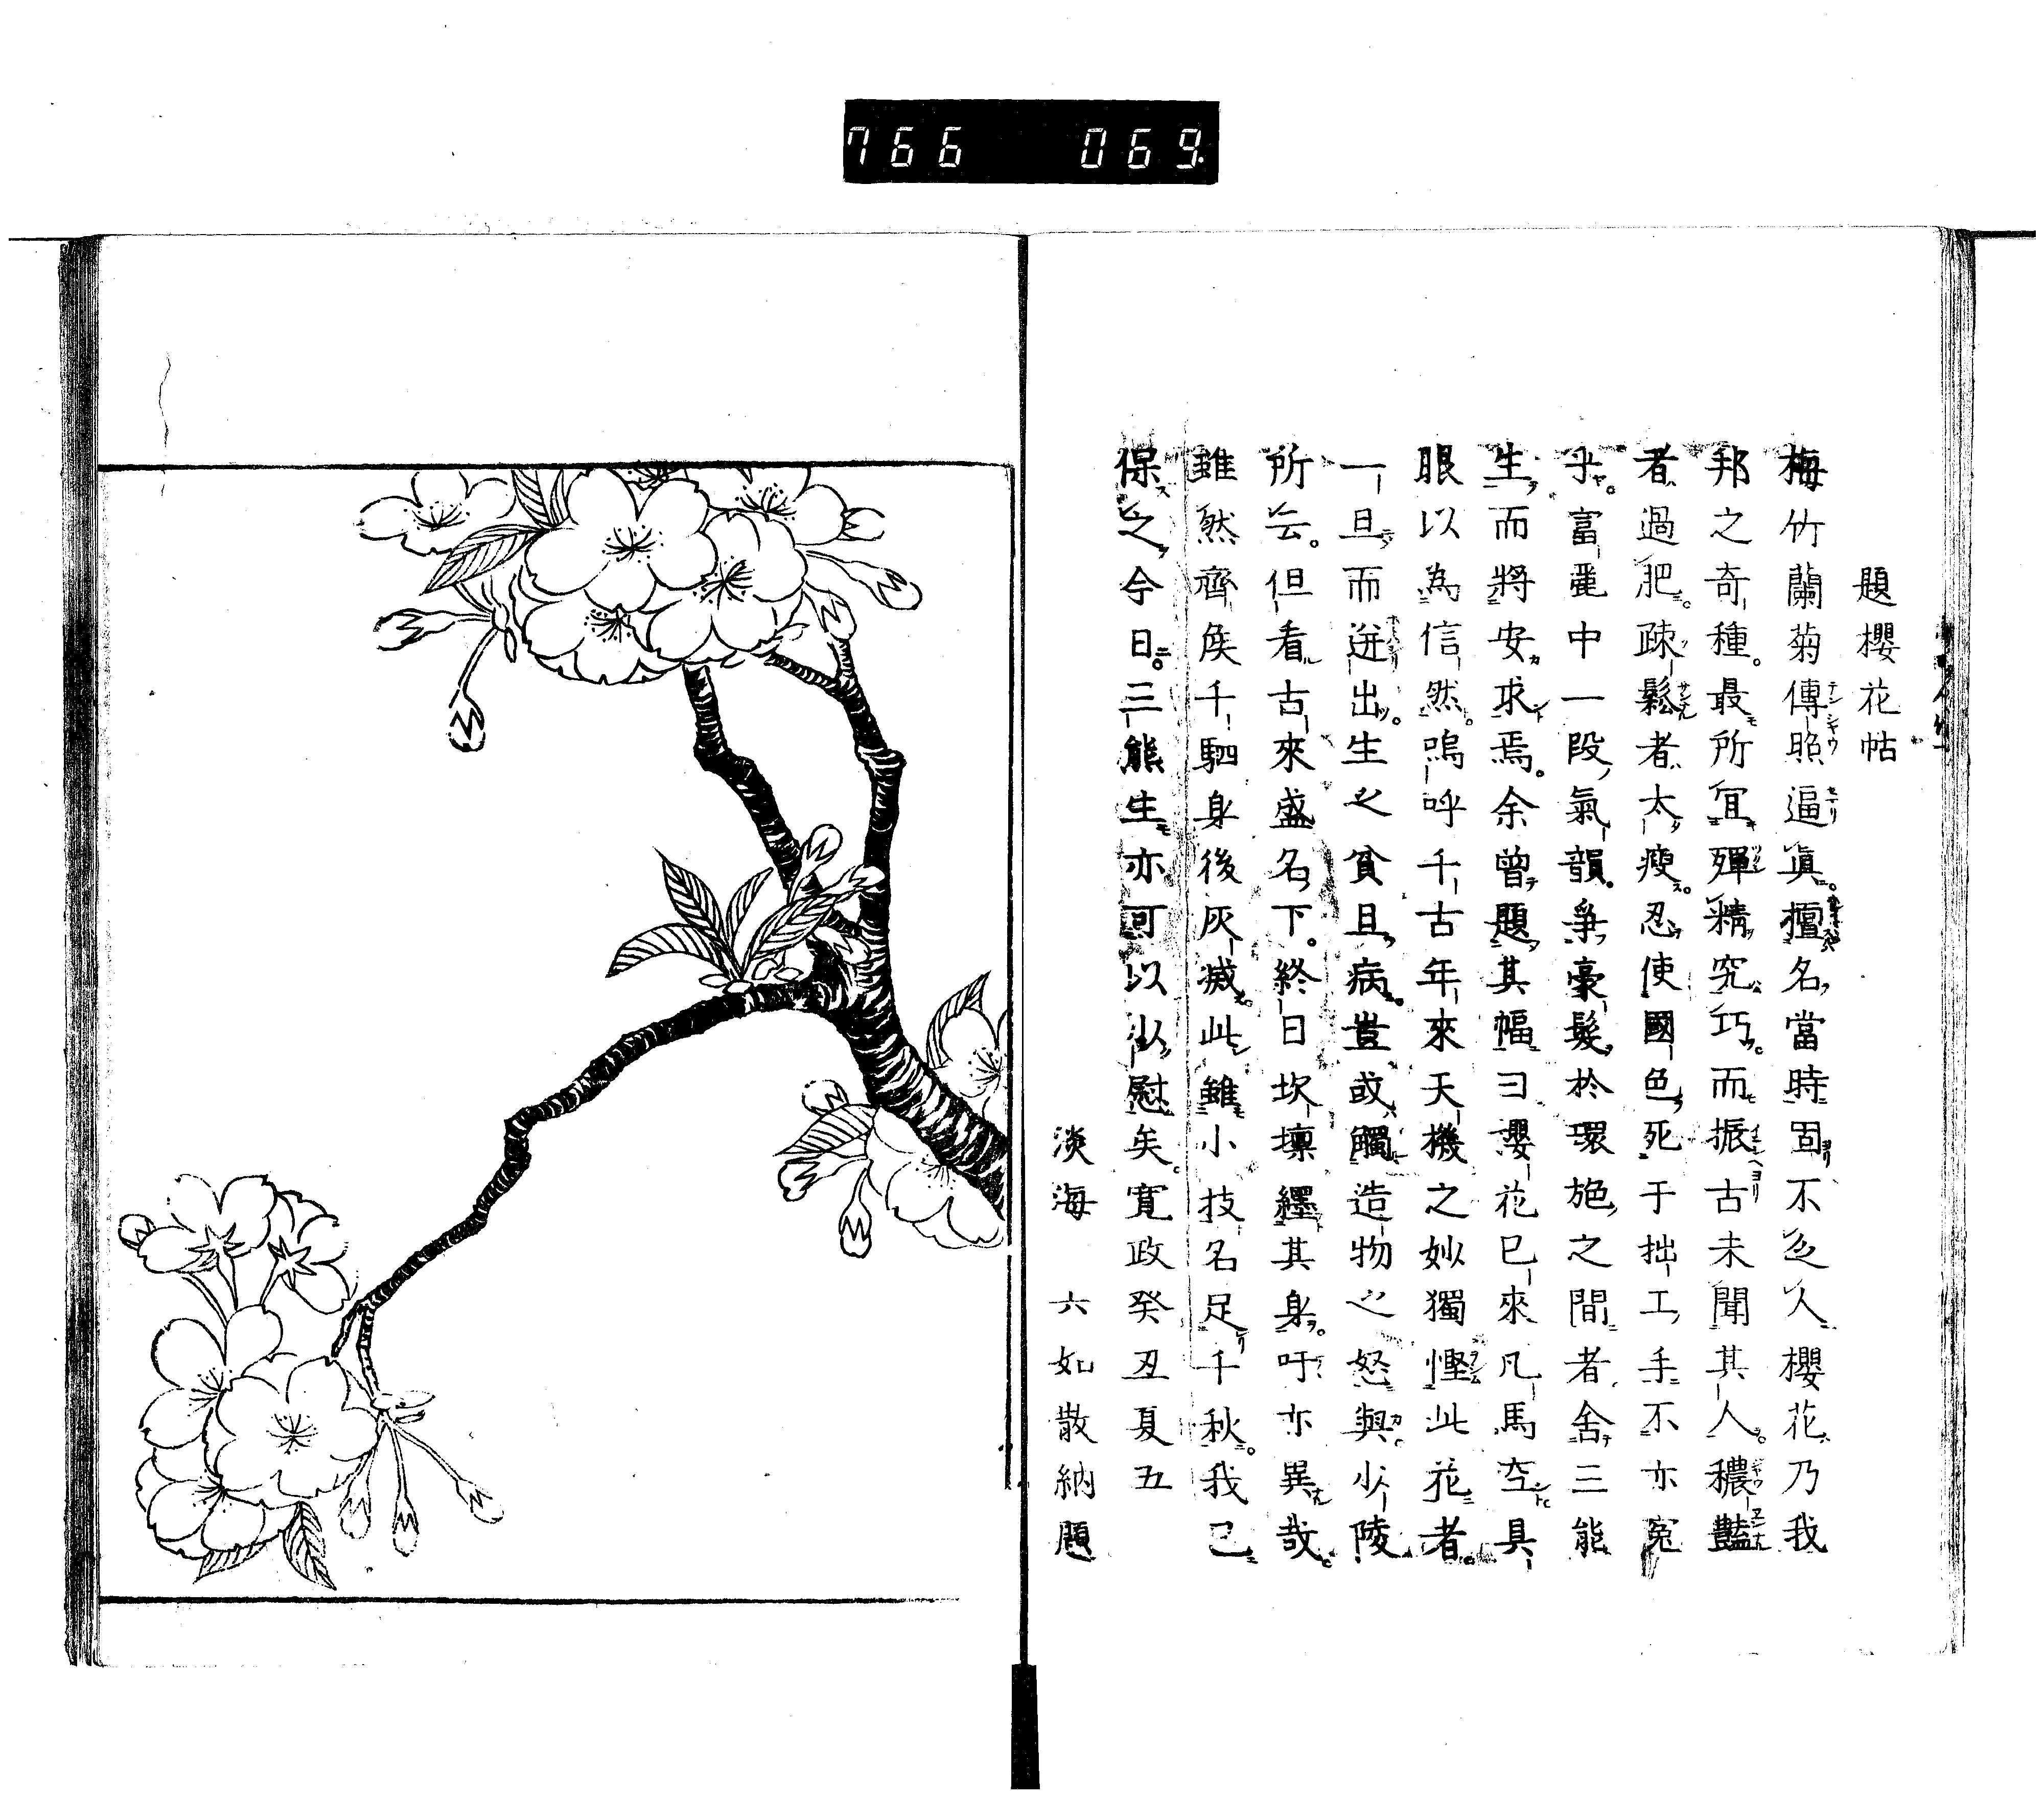 766 069
題櫻花帖
梅竹蘭菊傳照逼眞擅名當時固不乏人櫻花乃我
邦之奇種最所宜殫精究巧而振古未聞其人穠豔
者過肥疎鬆者太瘦忍使國色死于拙工手不亦寃
乎富麗中一段氣韻爭豪髮於環施之間者舍三熊
生而將安求焉余曾題其幅曰櫻花已來凡馬空具
眼以為信然嗚呼千古年來天機之妙獨慳此花者
一旦而迸出生之貧且病豈或觸造物之怒與少陵
所云但看古來盛名下終日坎壈纒其身吁亦異哉
雖然齊侯千駟身後灰滅此雖小技名足千秋我已
保之今日三熊生亦可以少慰矣寛政癸丑夏五
淡海 六如散衲題